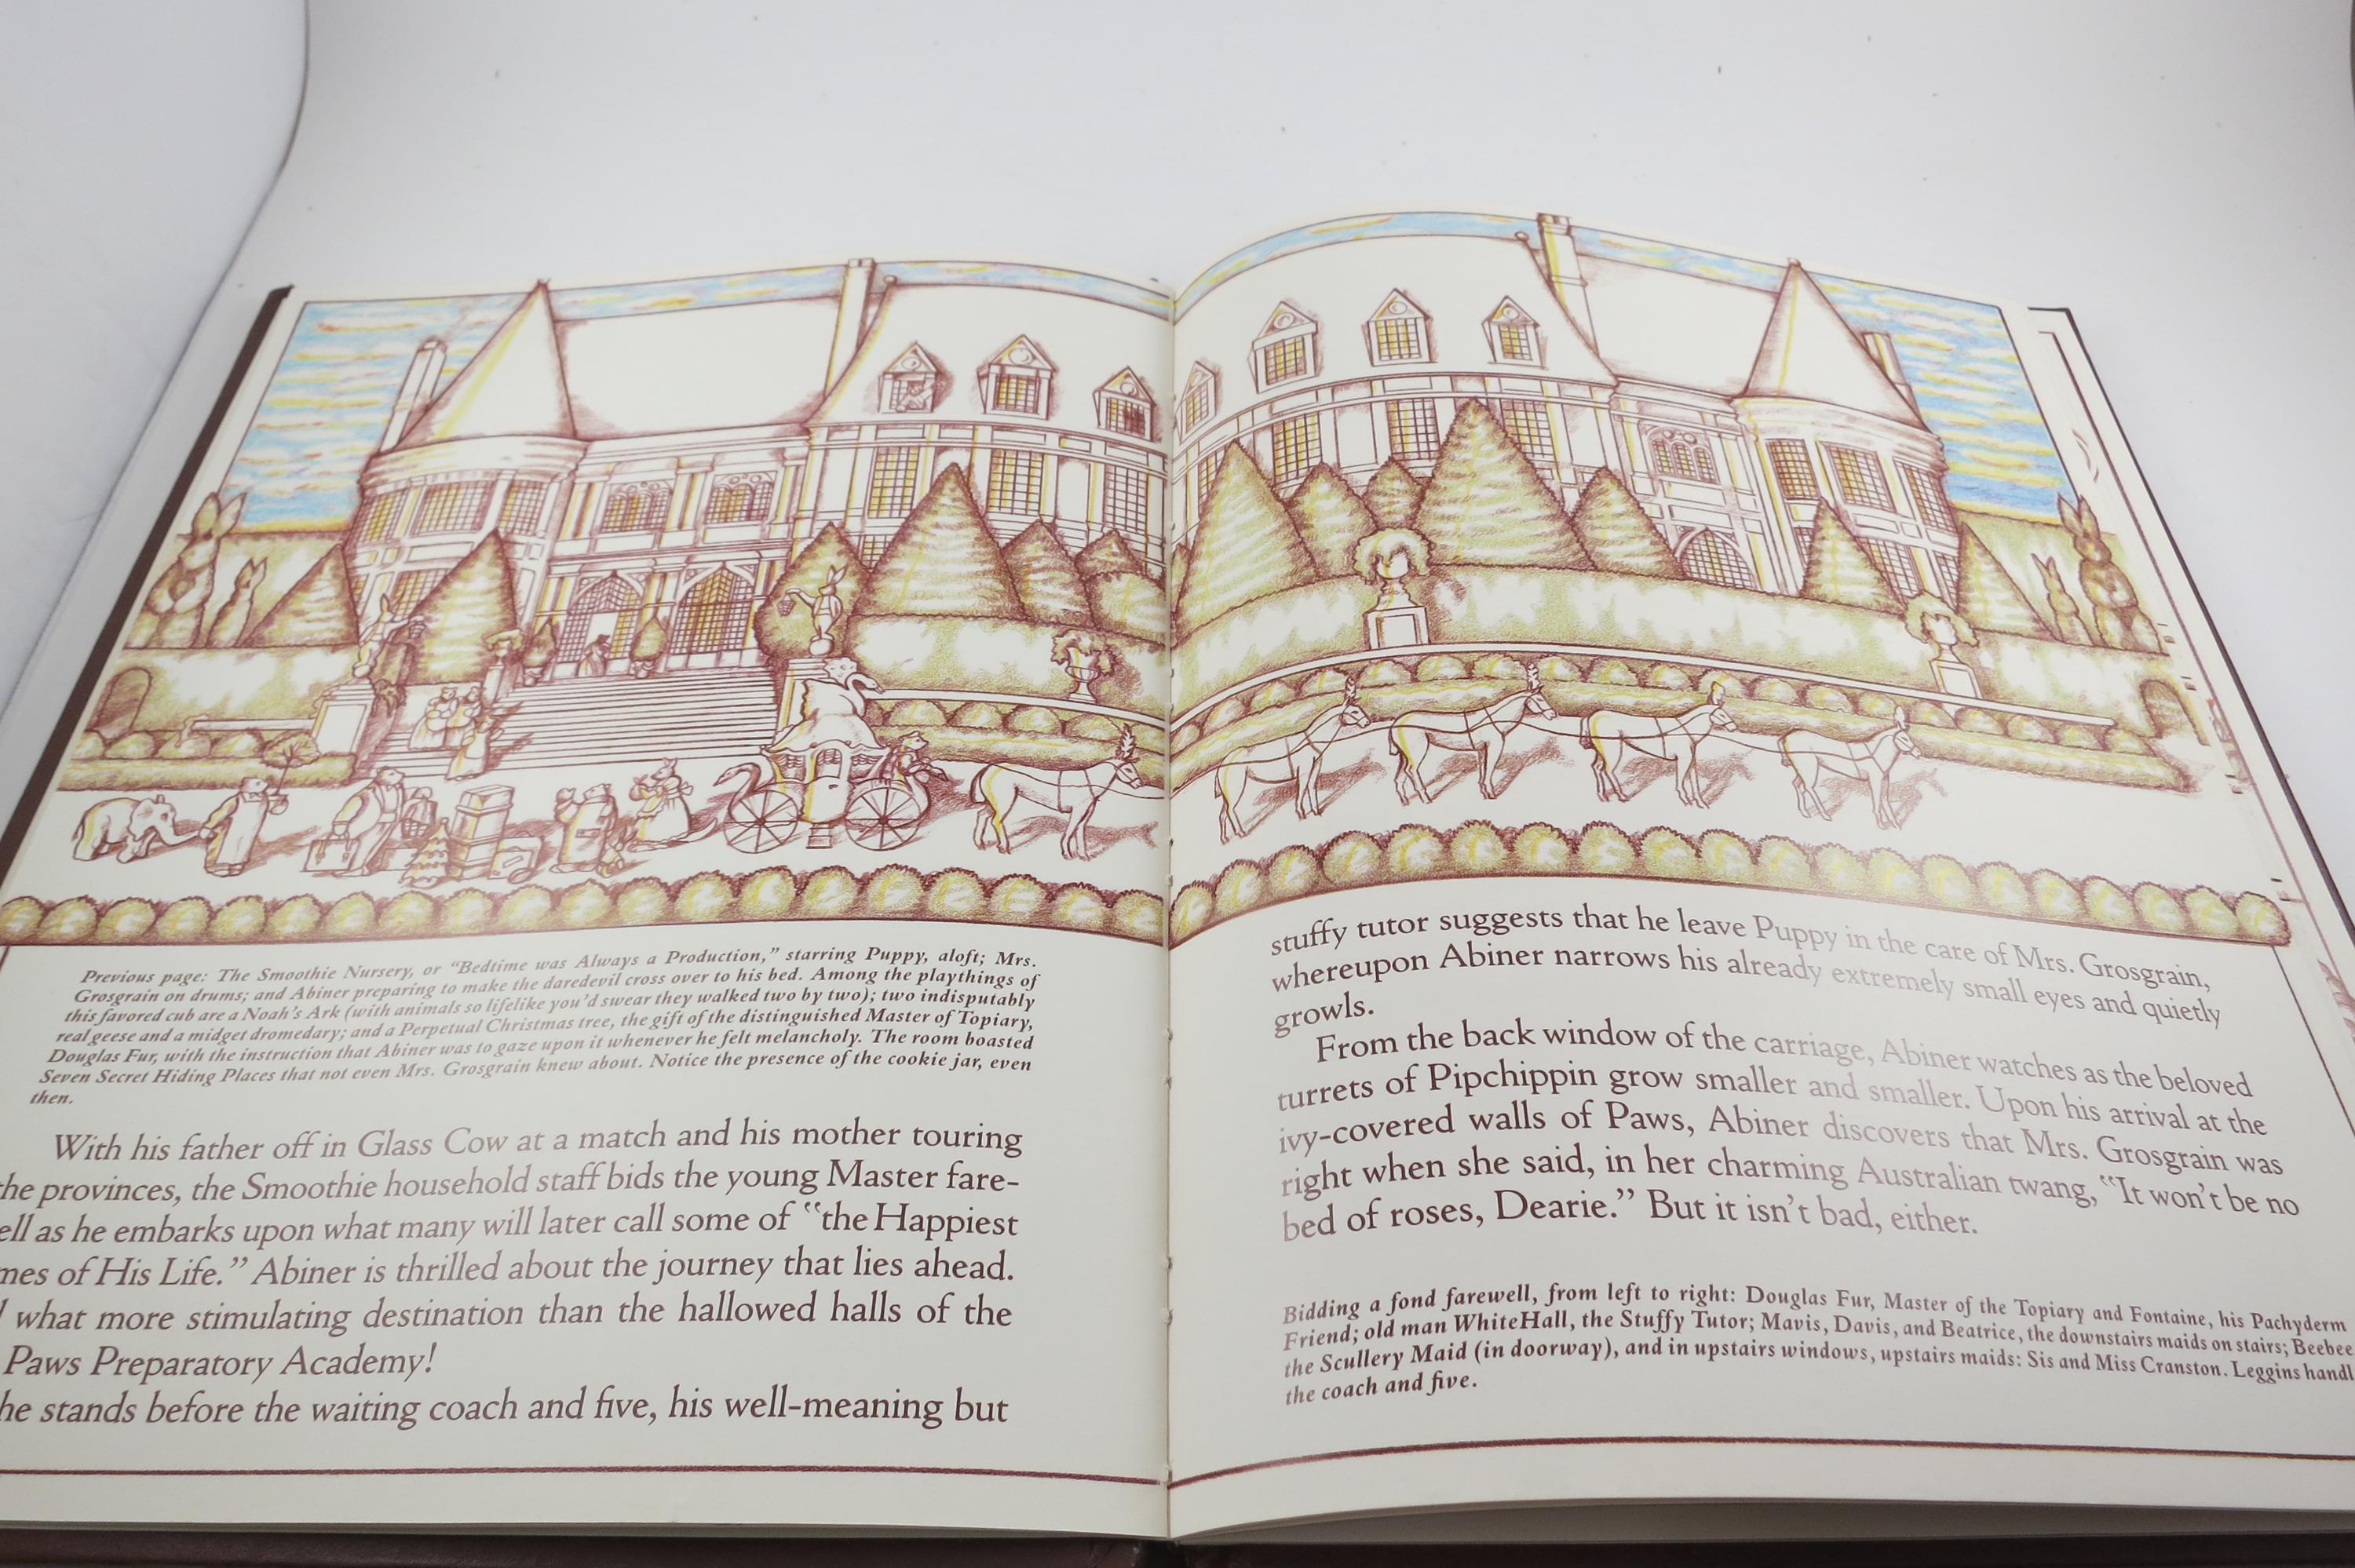 Previous page: The Smoothie Nursery, or “Bedtime was Always a Production,” starring Puppy, aloft; Mrs.
Grosgrain on drums; and Abiner preparing to make the daredevil cross over to his bed. Among the playthings of
this favored cub are a Noah’s Ark (with animals so lifelike you’d swear they walked two by two); two indisputably
real geese and a midget dromedary; and a Perpetual Christmas tree, the gift of the distinguished Master of Topiary,
Douglas Fur, with the instruction that Abiner was to gaze upon it whenever he felt melancholy. The room boasted
Seven Secret Hiding Places that not even Mrs. Grosgrain knew about. Notice the presence of the cookie jar, even
then.
With his father off in Glass Cow at a match and his mother touring
he provinces, the Smoothie household staff bids the young Master fare-
ell as he embarks upon what many will later call some of “the Happiest
mes of His Life.” Abiner is thrilled about the journey that lies ahead.
what more stimulating destination than the hallowed halls of the
Paws Preparatory Academy!
he stands before the waiting coach and five, his well-meaning but
stuffy tutor suggests that he leave Puppy in the care of Mrs. Grosgrain,
whereupon Abiner narrows his already extremely small eyes and quietly
growls.
From the back window of the carriage, Abiner watches as the beloved
turrets of Pipchippin grow smaller and smaller. Upon his arrival at the
ivy-covered walls of Paws, Abiner discovers that Mrs. Grosgrain was
right when she said, in her charming Australian twang, “It won’t be no
bed of roses, Dearie.” But it isn’t bad, either.
Bidding a fond farewell, from left to right: Douglas Fur, Master of the Topiary and Fontaine, his Pachyderm
Friend; old man WhiteHall, the Stuffy Tutor; Mavis, Davis, and Beatrice, the downstairs maids on stairs; Beebee
the Scullery Maid (in doorway), and in upstairs windows, upstairs maids: Sis and Miss Cranston. Leggins handl
the coach and five.